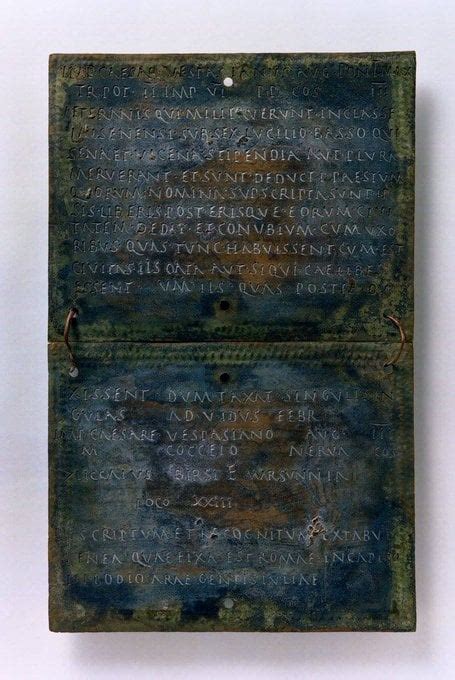 CAESAR VESPASIANVS AVG PONT MAX
TR POT II IMP VI P P COS III
VETERANIS QVI MILITAVERVNT IN CLASSE
MISENENSI SVB SEX LVCILIO BASSO QVI
SENA ET VICENA STIPENDIA AVT PLVRA
MERVERANT ET SVNT DEDVCTI PAESTVM
QVORVM NOMINA SVBSCRIPTA SVNT IP
SIS LIBERIS POSTERISQVE EORVM CIVI
TATEM DEDIT ET CONVBIVM CVM VXO
RIBVS QVAS TVNC HABVISSENT CVM EST
CIVITAS IIS DATA AVT SIQVI CAELIBES
ESSENT CVM IIS QVAS POSTEA
XISSENT DVMTAXAT SINGVLI SIN
GVLAS A D V IDVS FEBR
IMP CAESARE VESPASIANO AVG III
M COCCEIO NERVA COS
BIRSI F
LOCO XXIII
DESCRIPTVM ET RECOGNITVM EX TABV
AENEA QVAE FIXA EST ROMAE IN CAPITO
IN PODIO ARAE GENTIS IVLIAE